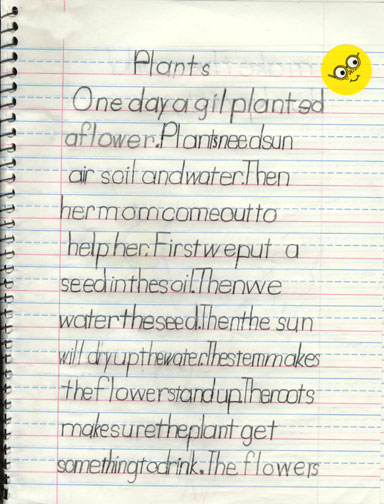 Plants
One day a gil planted
a flower. Plants need sun
air soil and water. Then
her mom come out to
help her. First we put a
seed in the soil. Then we
water the seed. Then the sun
will dry up the water. The stem makes
the flower stand up. The roots
make sure the plant get
something to drink. The flowers